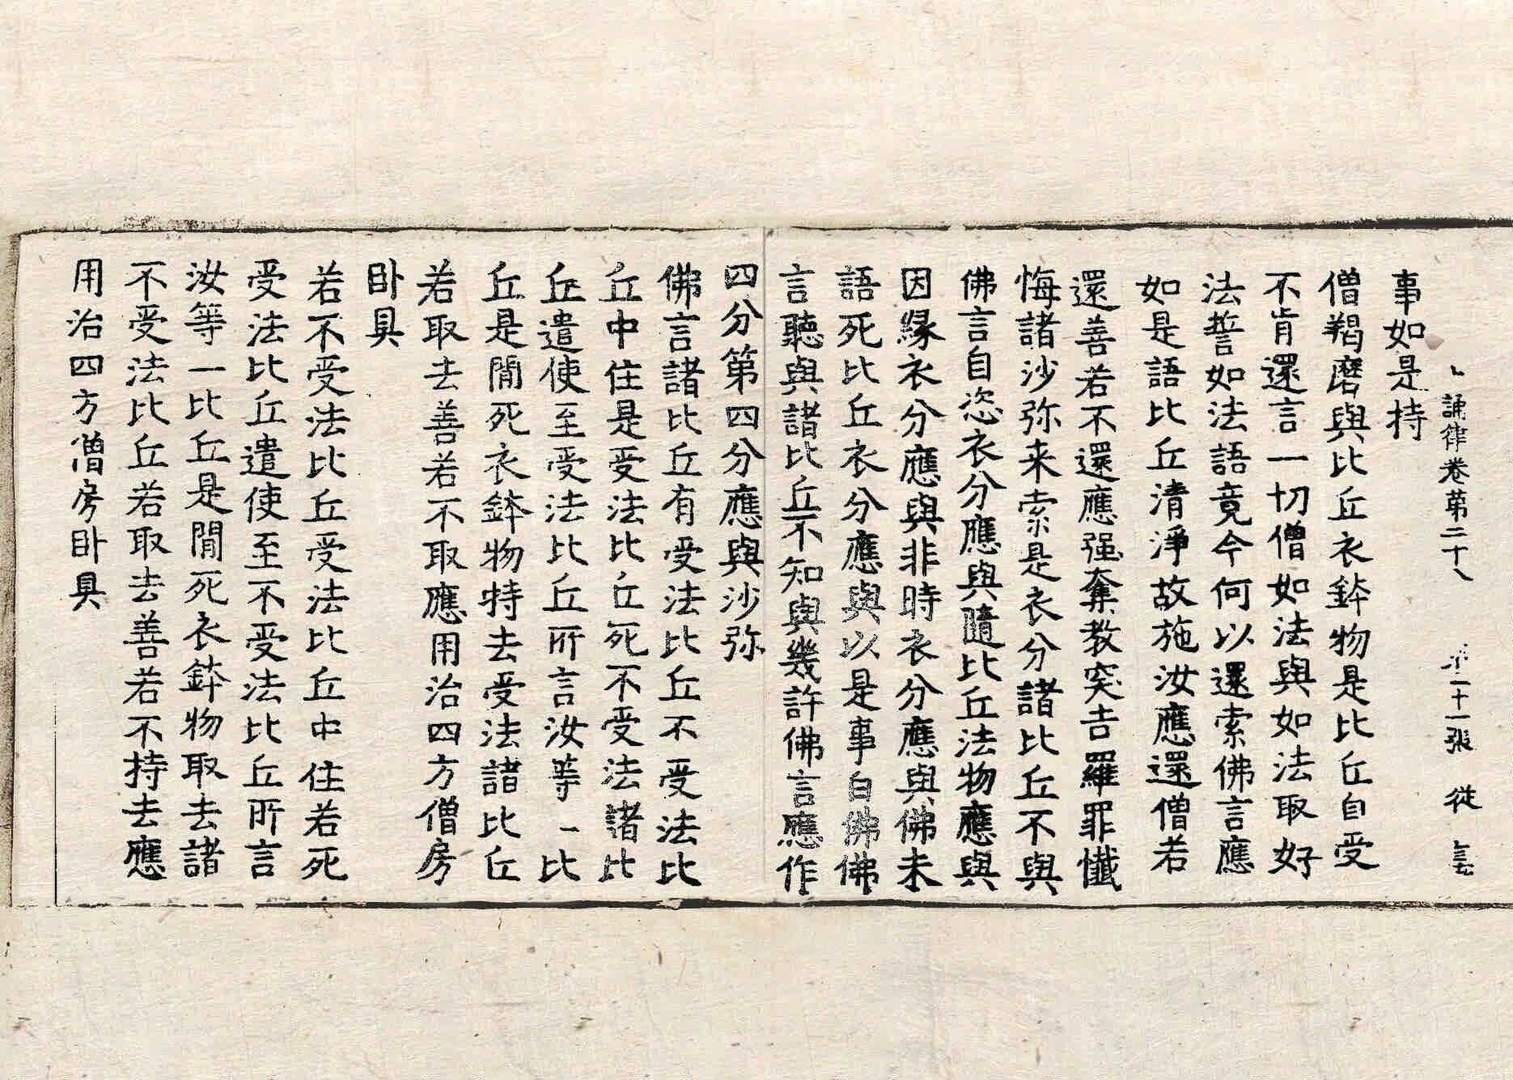 誦律卷第二十
第二十一張 從
事如是持
僧羯磨與比丘衣鉢物是比丘自受
不肯還言一切僧如法與如法取好
法誓如法語竟今何以還索佛言應
如是語比丘清淨故施汝應還僧若
還善若不還應强奪教突吉羅罪懺
悔諸沙弥来索是衣分諸比丘不與
佛言自恣衣分應與隨比丘法物應與
因緣衣分應與非時衣分應與佛未
語死比丘衣分應與以是事白佛佛
言聽與諸比丘不知與幾許佛言應作
四分第四分應與沙弥
佛言諸比丘有受法比丘不受法比
丘中住是受法比丘死不受法諸比
丘遣使至受法比丘所言汝等一比
丘是閒死衣鉢物持去受法諸比丘
若取去善若不取應用治四方僧房
卧具
若不受法比丘受法比丘中住若死
受法比丘遣使至不受法比丘所言
汝等一比丘是閒死衣鉢物取去諸
不受法比丘若取去善若不持去應
用治四方僧房卧具